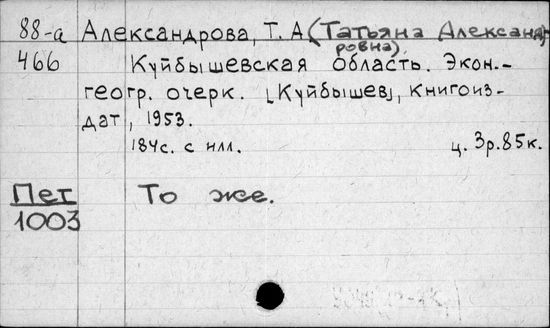 88-а Александрова, Т. А (Татьяна Александ-
ровна).
466 Куйбышевская область. Экон.-
геогр. очерк. [Куйбышев], книгоиз-
дат, 1953.
184с. с илл. ц. 3р.85к.
Пет То же.
1003